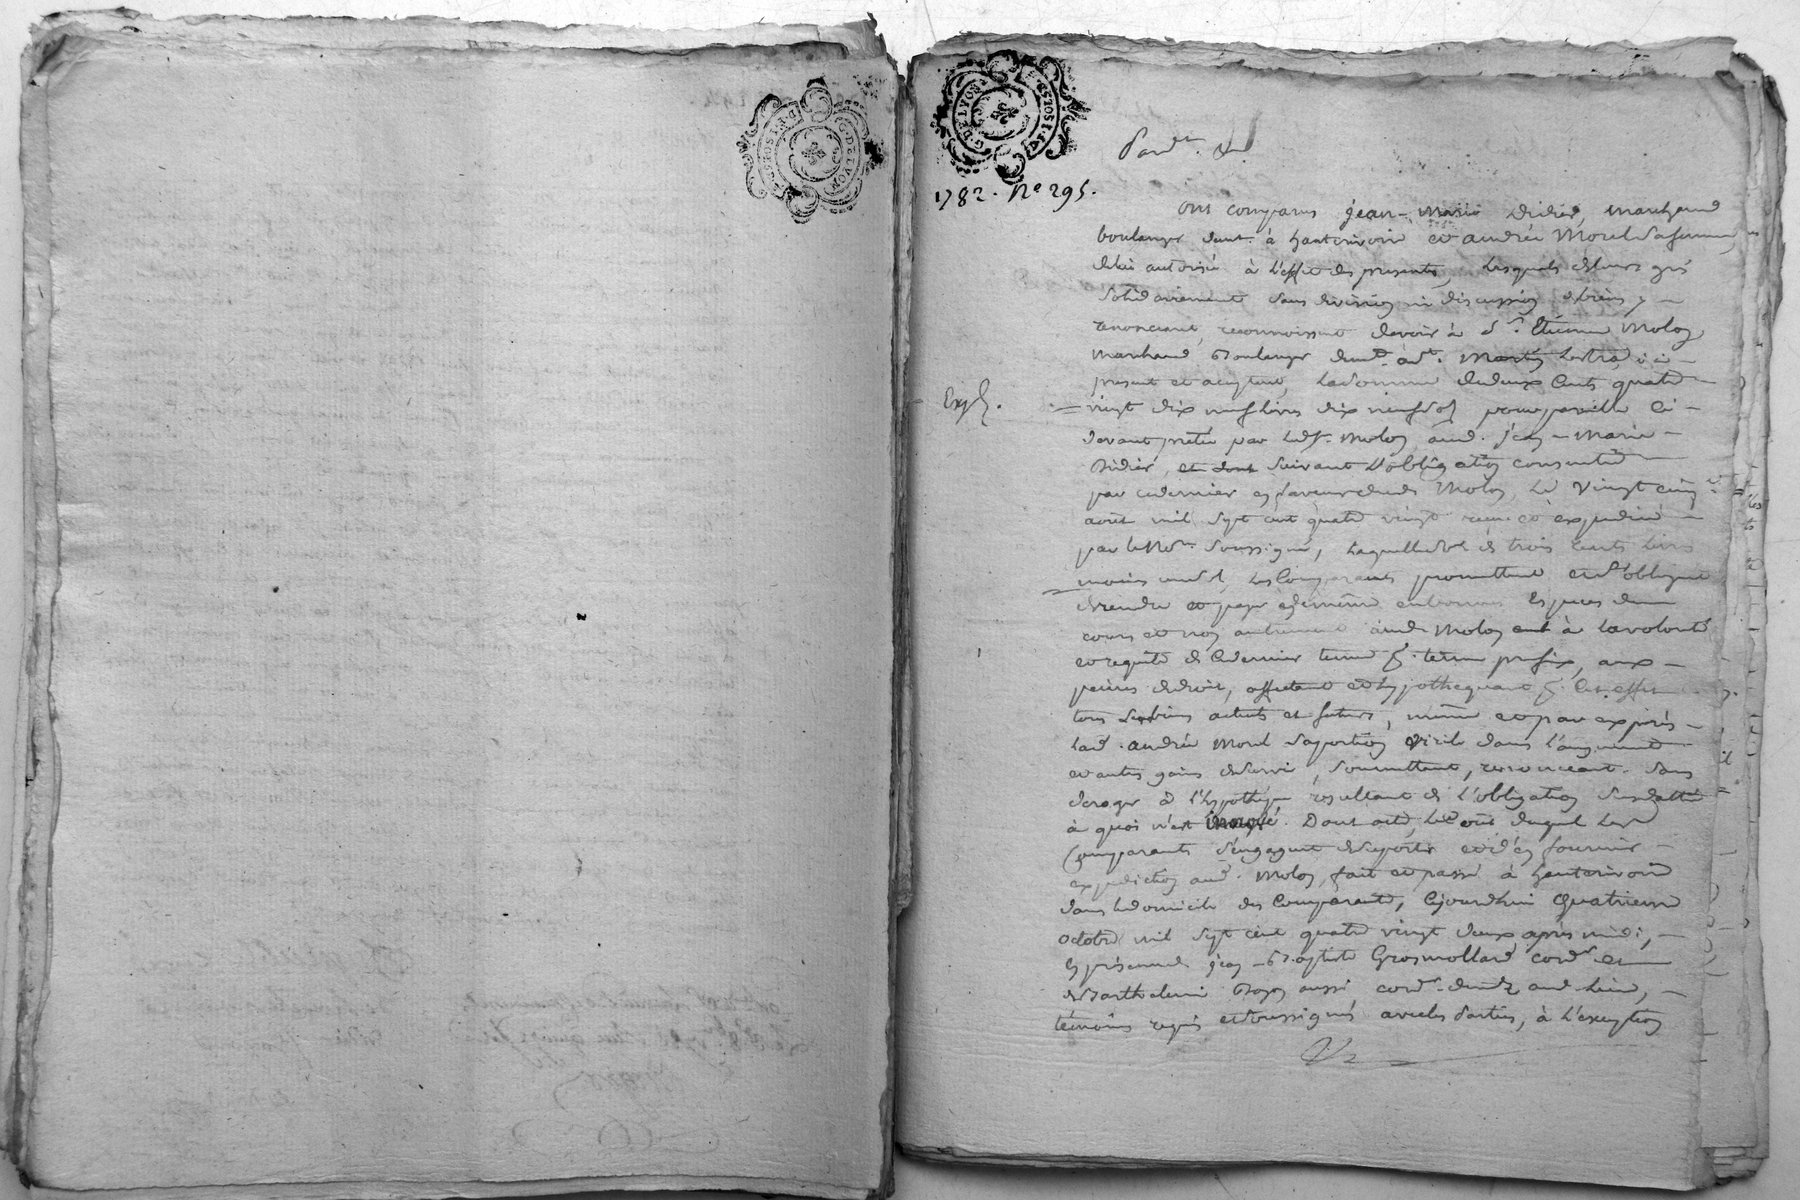 G. DE LYON
1782. N° 295.
Pard.t
ont comparus jean-marie Didier, marchand
boulanger dem.t à hauterivoire et andrée Morel sa femme
de lui autorisée à l'effet des presentes, Lesquels de leurs gré
solidairement sans division ni discussion de biens y
renonceant, reconnoissent devoir à s.r Etienne Molon
marchand Boulanger dem.t à s.t Martin Lestra, ici
present et aceptant, La somme de deux Cents quatre
Exp.
vingt dix neuf livres dix neuf sols pour pareille ci
devant pretée par led. s.r Molon aud. jean-marie
Didier, suivant L'obligation consentie
par ce dernier en faveur dud. Molon, Le vingt cinq
août mil sept cent quatre vingt reçue et expediée
par le No.re soussigné, Laquelle de trois Cents livres
moins un sol, Les Comparants promettent et s'obligent
de rendre et payer en Especes du
cours et non autrement aud. Molon à la volonté
et requête de Ce dernier terme p. terme prefix, aux
peines de droit, affectant et hypothequant p. Cet effet
tous Les biens actuels et futurs, même et par exprès
Lad. andrée Morel sa portion virile dans l'augment
et autres gains de survie, soumettant, renonceant. sans
deroger à l'hypotheque resultant de L'obligation susdattée
à quoi n'est innové. Dont acte, Le coût duquel Les
Comparants s'engagent de suporter et d'en fournir
expedition aud. Molon, fait et passé à hauterivoire
dans Le domicile des Comparants, Cejourd'hui quatrieme
octobre mil sept cent quatre vingt deux après midi,
En presence de jean-Baptiste Grosmollard cord.r et
de Barthelemi aussi cord.r dem.t aud. Lieu,
témoins requis et soussignés avec les parties, à L'exception